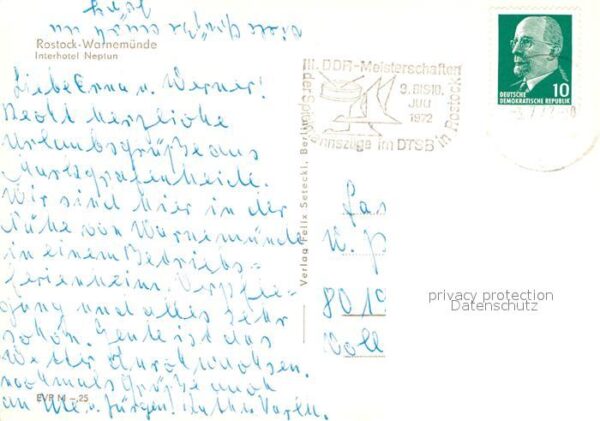 Rostock-Warnemünde
Interhotel Neptun
Liebe Erna u. Werner!
Recht herzliche
Urlaubsgrüße aus
Markgrafenheide.
Wir sind hier in der
Nähe von Warnemünde
in einem Betriebs-
ferienheim. Verpfle-
gung und alles sehr
schön. Heute ist das
Wetter durchwachsen.
nochmals Grüße auch
an Ute u. Jürgen!
EVP M -,25
Verlag Felix Setecki, Berlin
III. DDR-Meisterschaften
9. BIS 16.
JULI
1972
der Spielmannszüge im DTSB in Rostock
10
DEUTSCHE
DEMOKRATISCHE REPUBLIK
Fa
W. P
801
privacy protection
Datenschutz